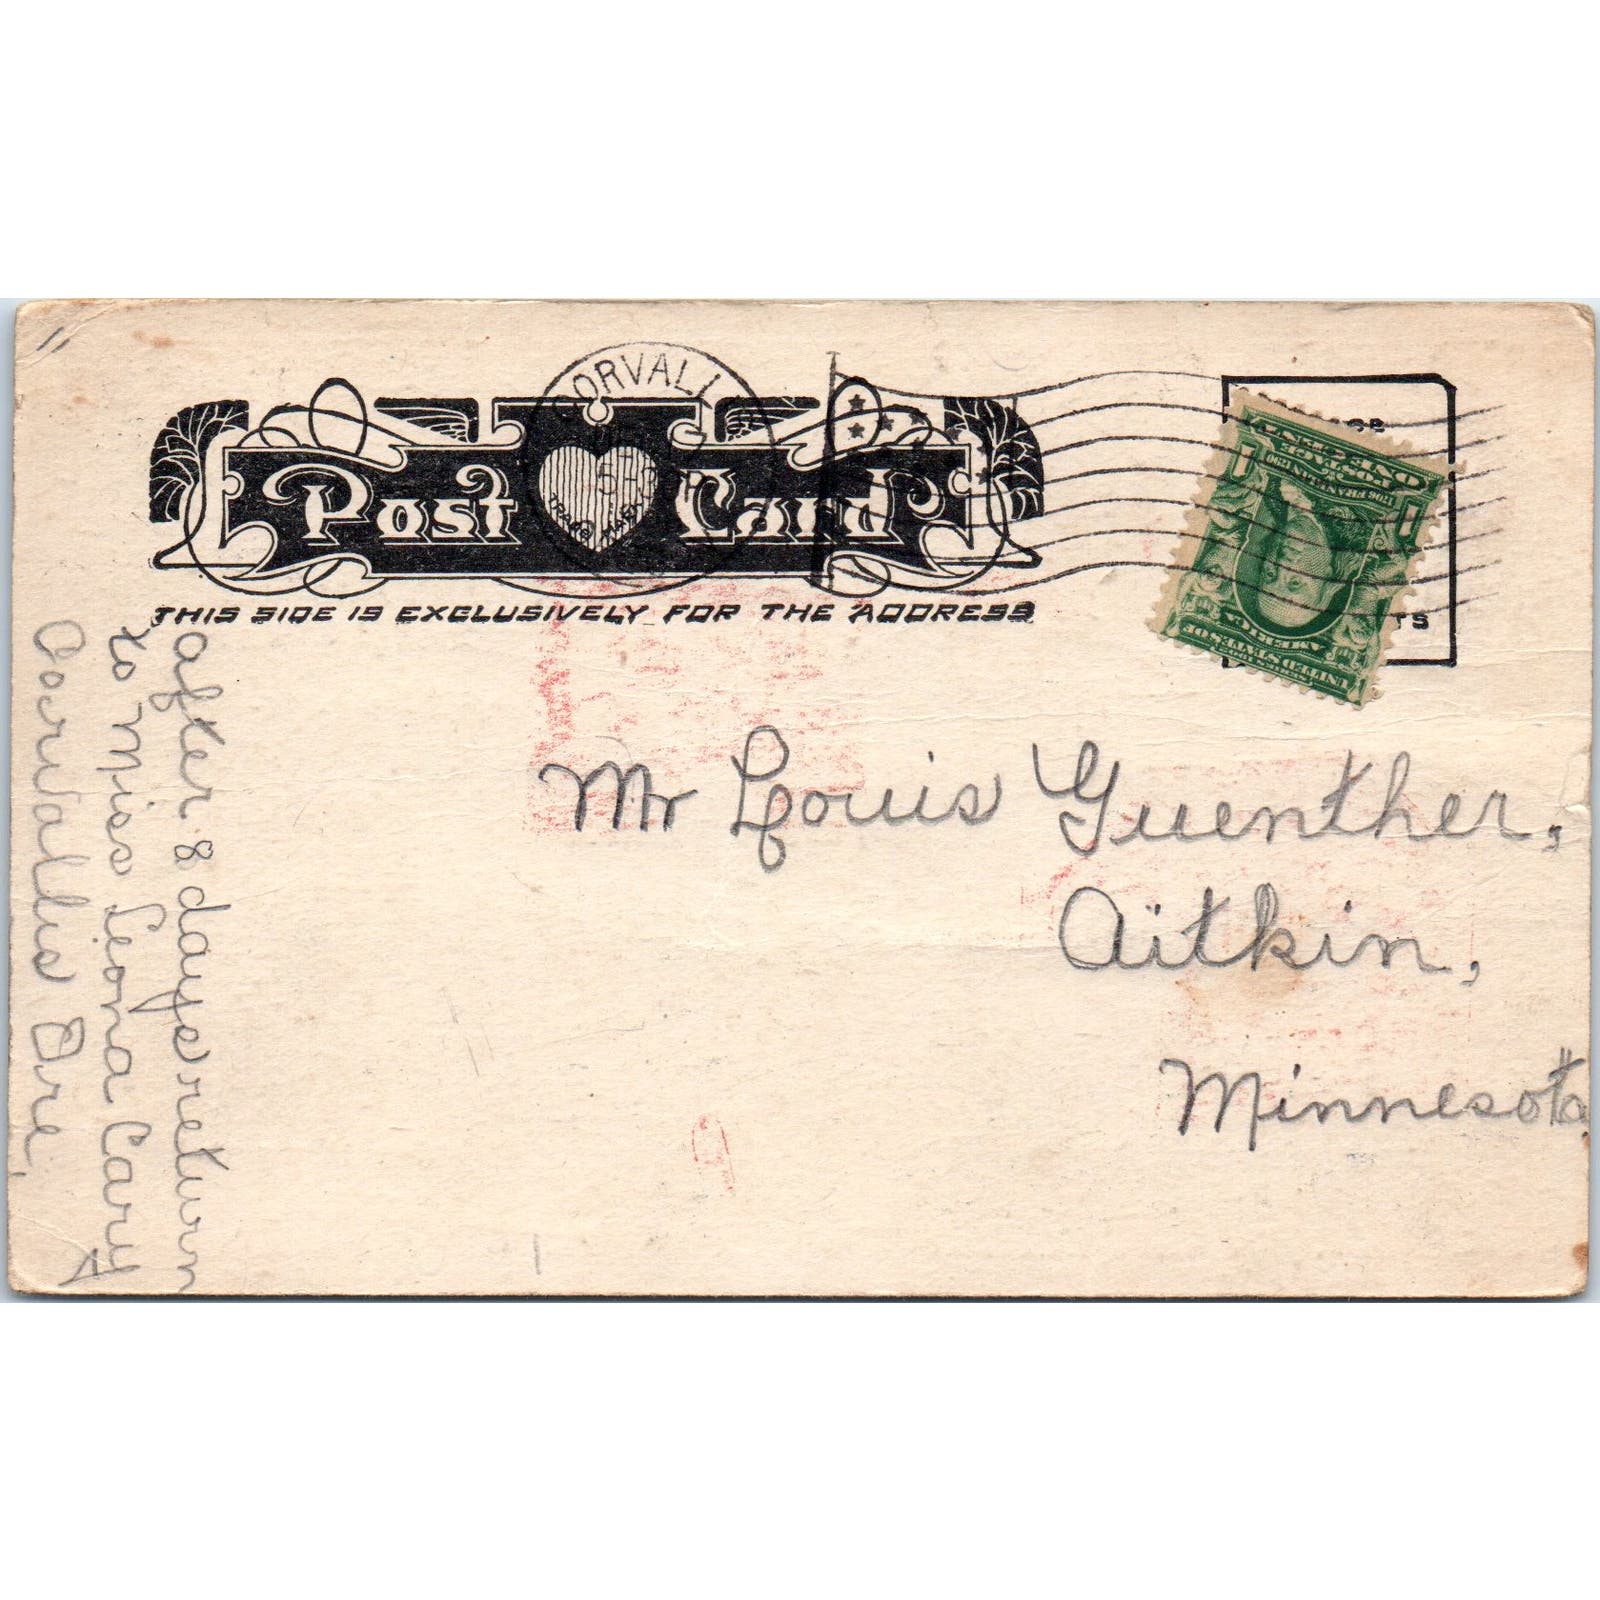 CORVALLI
Post Card
TRADE MARK
THIS SIDE IS EXCLUSIVELY FOR THE ADDRESS
ONE CENT
POSTAGE
1706 FRANKLIN 1790
1 1
UNITED STATES OF
AMERICA
TS
Mr Louis Guenther,
Aitkin,
Minnesota
after 8 days return
to Miss Leona Cary
Corvallis Ore,